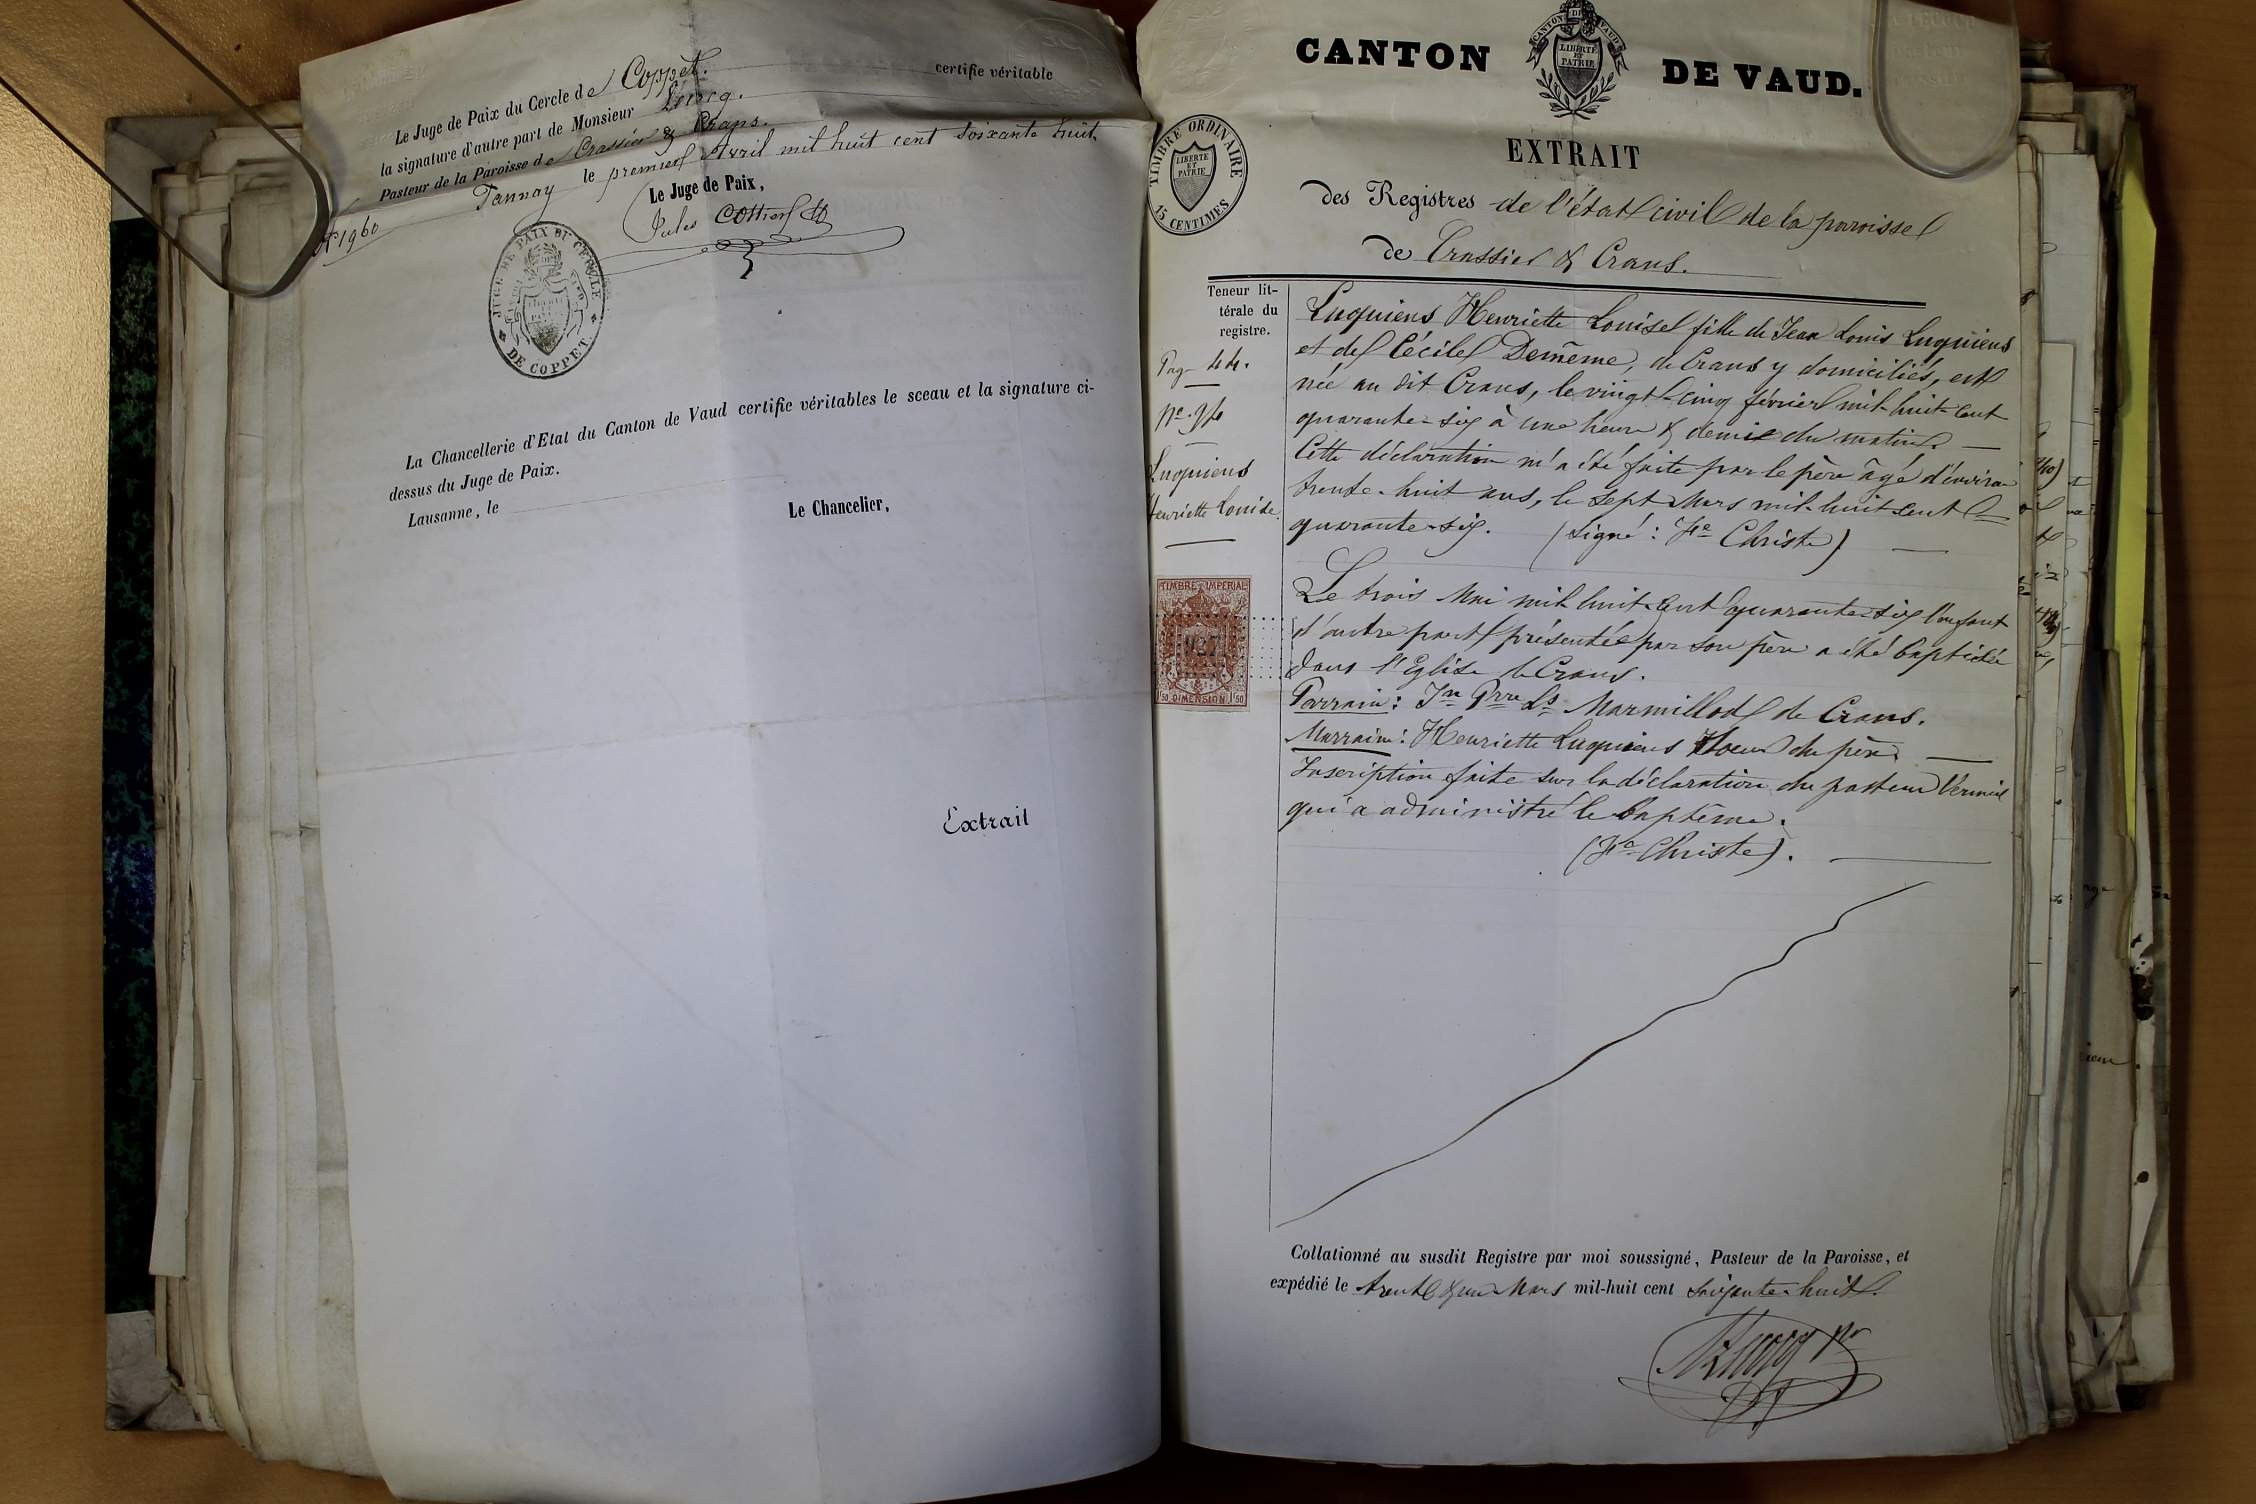 Le Juge de Paix du Cercle de Coppet. certifie véritable
la signature d'autre part de Monsieur
Pasteur de la Paroisse de Crassier & Crans.
Tannay le premier Avril mil huit cent soixante huit
No 1960
Le Juge de Paix,
Jules Cottier
JUGE DE PAIX DU CERCLE
DE COPPET.
La Chancellerie d'Etat du Canton de Vaud certifie véritables le sceau et la signature ci-
dessus du Juge de Paix.
Lausanne, le
Le Chancelier,
Extrait
CANTON DE VAUD.
CANTON DE VAUD
LIBERTÉ
ET
PATRIE
TIMBRE ORDINAIRE
LIBERTÉ
ET
PATRIE
15 CENTIMES
EXTRAIT
des Registres de l'état civil de la paroisse
de Crassier & Crans.
Teneur lit-
térale du
registre.
Pag. 44.
No. 94
Luquiens
Henriette Louise
TIMBRE IMPERIAL
927
50 DIMENSION 50
Luquiens Henriette Louise fille de Jean Louis Luquiens
et de Cécile Demême, de Crans y domiciliés, est
née au dit Crans, le vingt-cinq février mil-huit-cent
quarante-six à une heure & demie du matin.
Cette déclaration m'a été faite par le père âgé d'environ
trente-huit ans, le sept Mars mil-huit-cent
quarante-six. (signé: Fc Christe)
Le trois Mai mil-huit-cent quarante-six l'enfant
d'autre part présentée par son père a été baptisée
dans l'Eglise de Crans.
Parrain: Jn Prre Ls Marmillod de Crans.
Marraine: Henriette Luquiens soeur du père.
Inscription faite sur la déclaration du pasteur
qui a administré le baptême.
(Fc Christe).
Collationné au susdit Registre par moi soussigné, Pasteur de la Paroisse, et
expédié le trente & un Mars mil-huit cent soixante-huit.